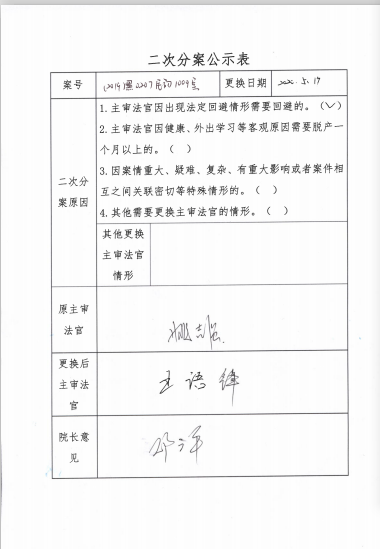 二次分案公示表
案号 (2019)黑2207民初1009号 更换日期 2020.5.19
二次分案原因
1.主审法官因出现法定回避情形需要回避的。（✓）
2.主审法官因健康、外出学习等客观原因需要脱产一
个月以上的。（ ）
3.因案情重大、疑难、复杂、有重大影响或者案件相
互之间关联密切等特殊情形的。（ ）
4.其他需要更换主审法官的情形。（ ）
其他更换
主审法官
情形
原主审
法官
更换后
主审法
官
王语锋
院长意
见